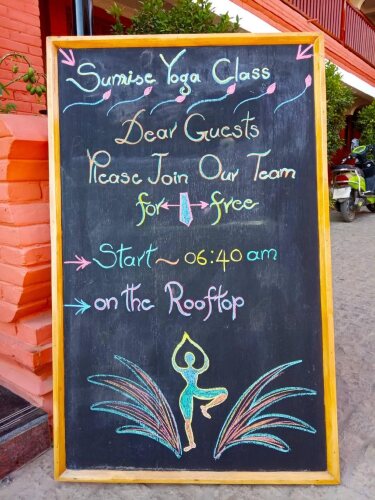 Sunrise Yoga Class
Dear Guests
Please Join Our Team
for free
Start ~ 06:40 am
on the Rooftop